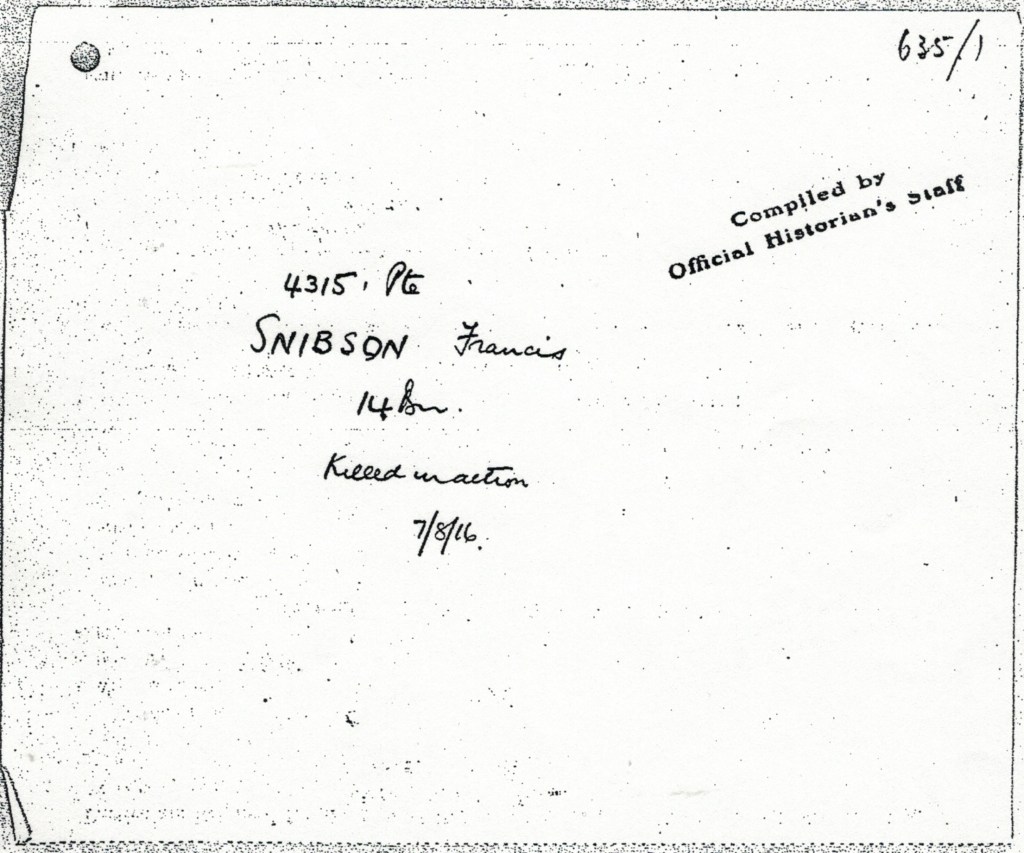 635/1
Compiled by
Official Historian's Staff
4315. Pte
SNIBSON Francis
14 Bn.
Killed in action
7/8/16.